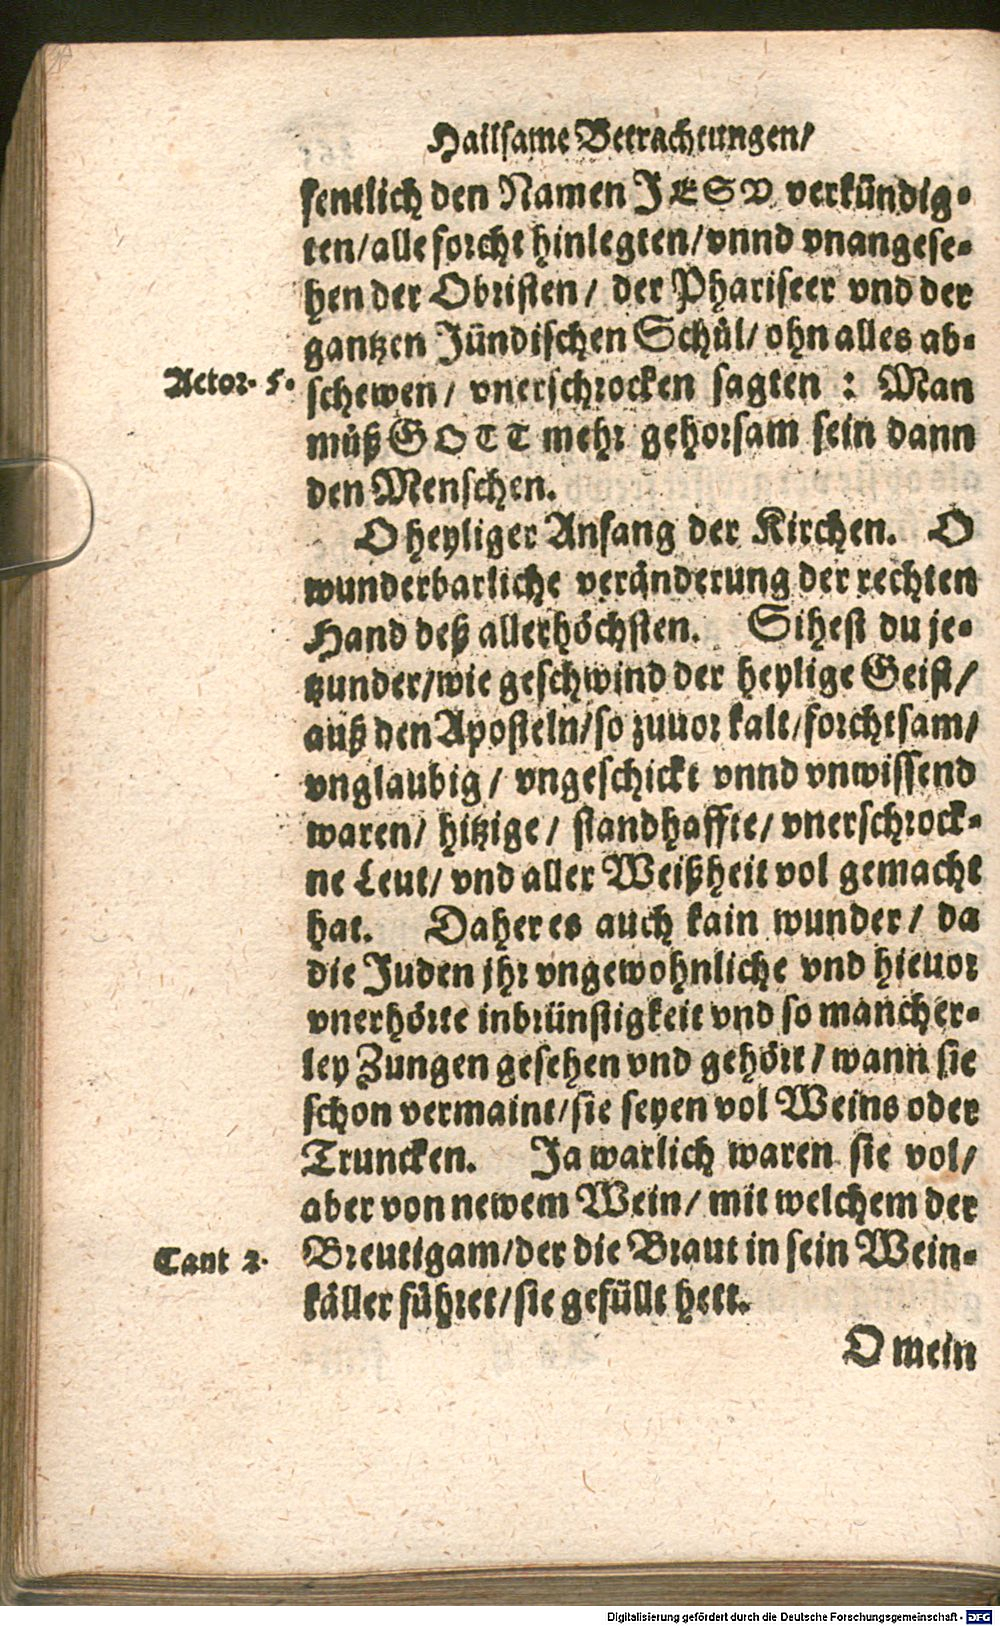 Hailsame Betrachtungen/
fentlich den Namen JESV verkündig-
ten/alle forcht hinlegten/vnnd vnangese-
hen der Obristen/ der Phariseer vnd der
gantzen Jündischen Schůl/ ohn alles ab-
Actor. 5. schewen/ vnerschrocken sagten : Man
můß GOTT mehr gehorsam sein dann
den Menschen.
O heyliger Anfang der Kirchen. O
wunderbarliche veränderung der rechten
Hand deß allerhöchsten. Sihest du je-
tzunder/wie geschwind der heylige Geist/
auß den Aposteln/so zuuor kalt/forchtsam/
vnglaubig/ vngeschickt vnnd vnwissend
waren/ hitzige/ standhaffte/ vnerschrock-
ne Leut/ vnd aller Weißheit vol gemacht
hat. Daher es auch kain wunder/ da
die Juden jhr vngewohnliche vnd hieuor
vnerhörte inbrünstigkeit vnd so mancher-
ley Zungen gesehen vnd gehört/ wann sie
schon vermaint/sie seyen vol Weins oder
Truncken. Ja warlich waren sie vol/
aber von newem Wein/ mit welchem der
Cant 2. Breutigam/der die Braut in sein Wein-
käller führet/sie gefüllt hett.
O mein
Digitalisierung gefördert durch die Deutsche Forschungsgemeinschaft - DFG